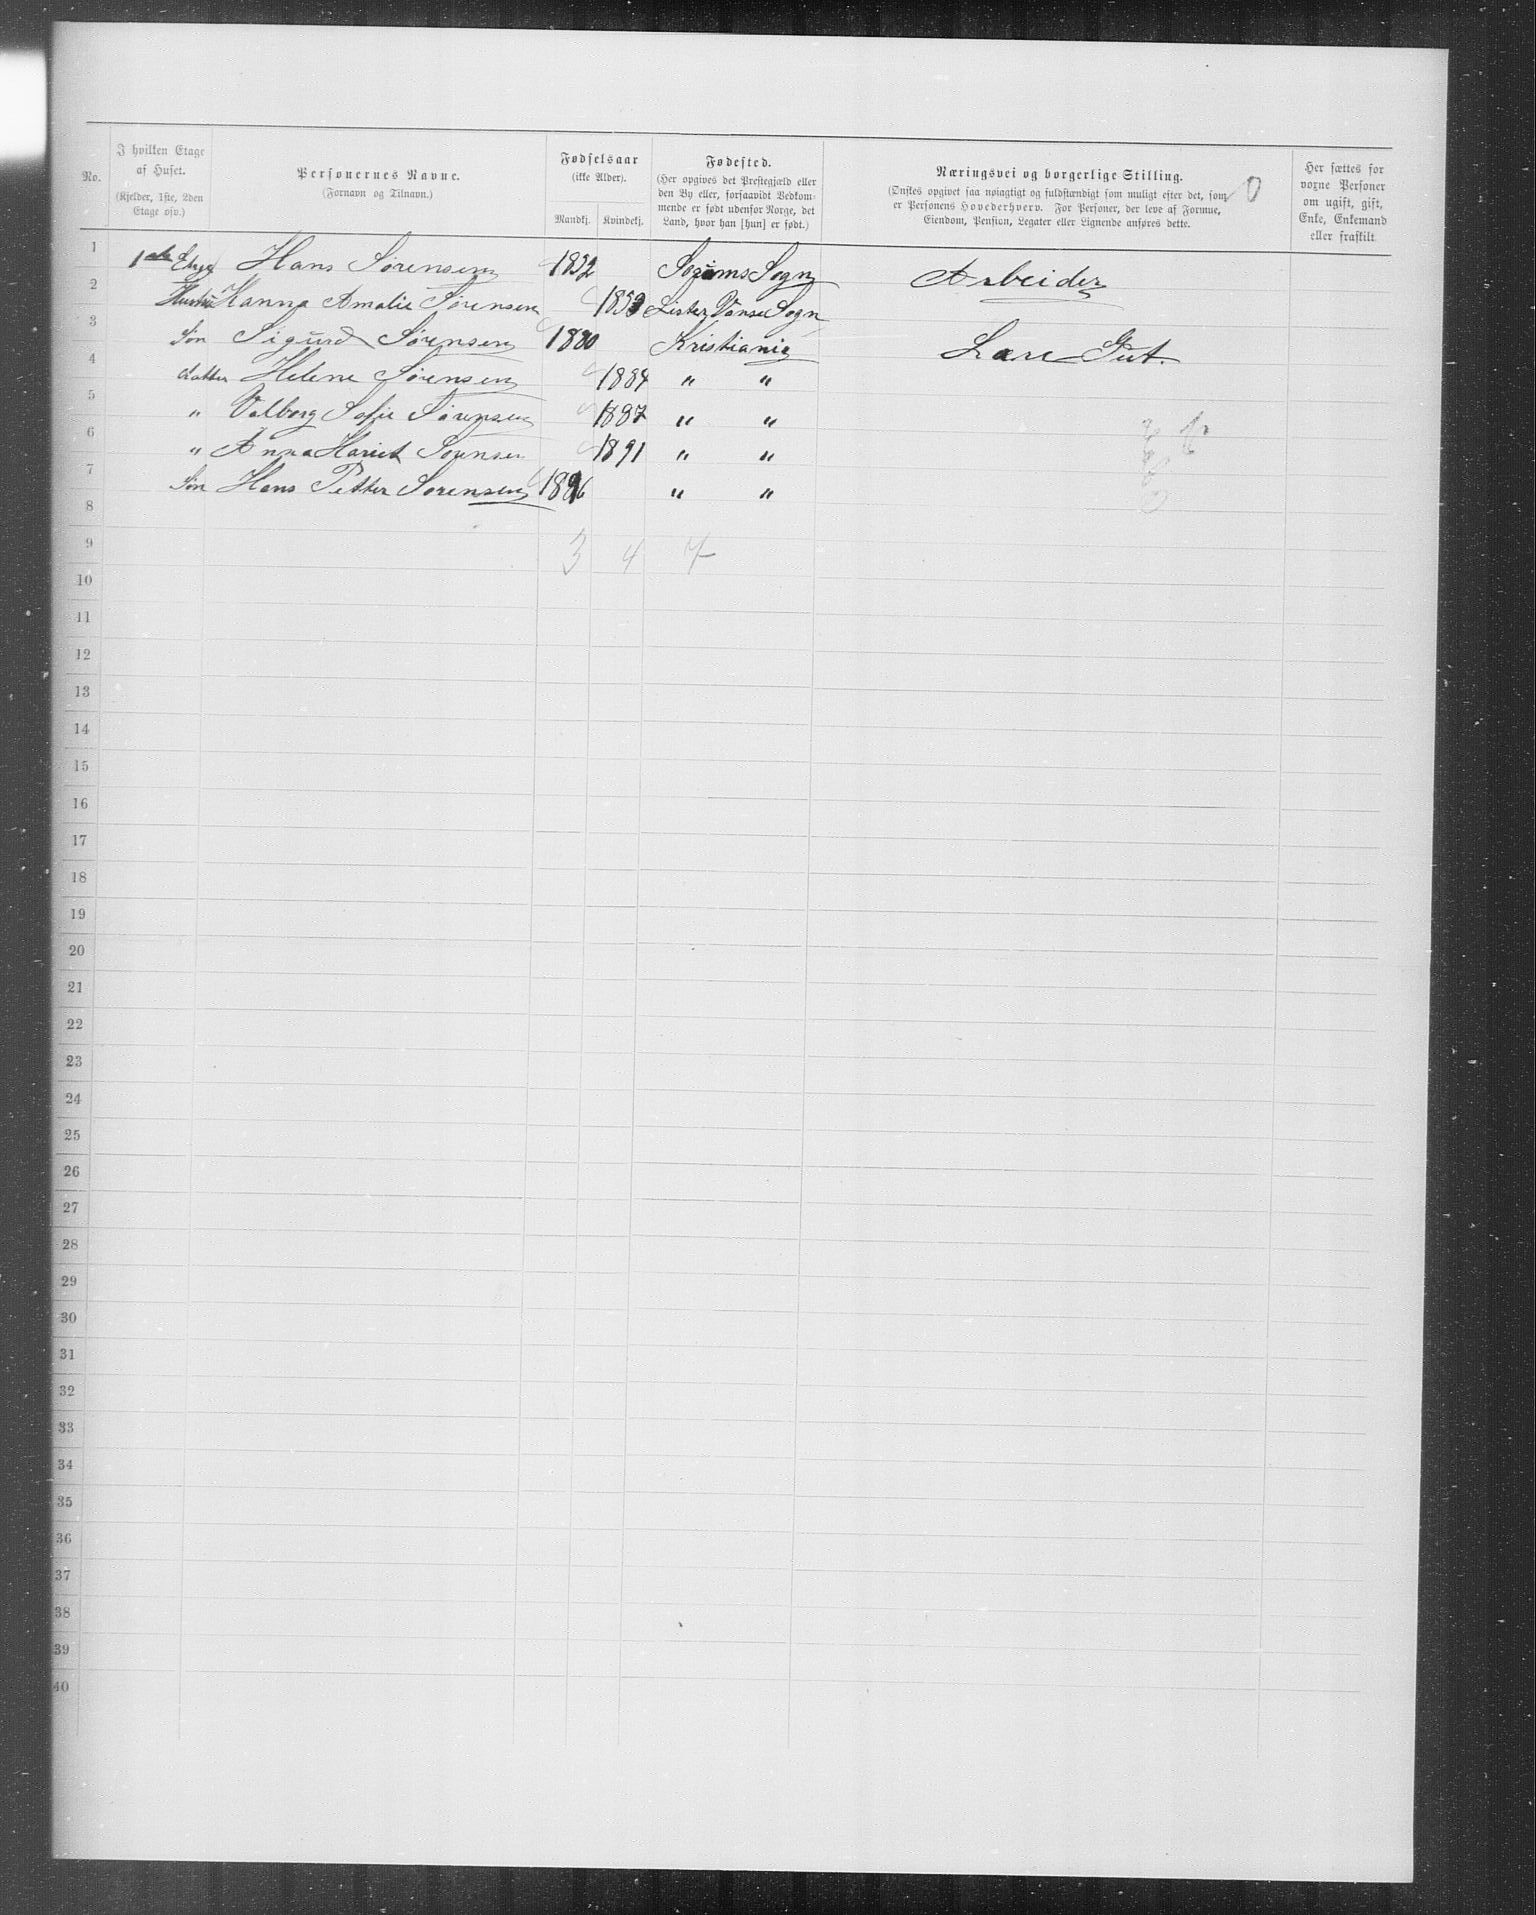 No. | I hvilken Etage af Huset. (Kjelder, 1ste, 2den Etage osv.) | Personernes Navne. (Fornavn og Tilnavn.) | Fødselsaar (ikke Alder). Mandkj. | Kvindekj. | Fødested. (Her opgives det Prestegjæld eller den By eller, forsaavidt Vedkommende er født udenfor Norge, det Land, hvor han [hun] er født.) | Næringsvei og borgerlige Stilling. (Ønskes opgivet saa nøiagtigt og fuldstændigt som muligt efter det, som er Personens Hovederhverv. For Personer, der leve af Formue, Eiendom, Pension, Legater eller Lignende anføres dette. | Her sættes for voxne Personer om ugift, gift, Enke, Enkemand eller fraskilt
0
1 1ste Etage Hans Sørensen 1852 Sogn Arbeider
2 Hustru Hanna Amalie Sørensen 1859 Lister Vanse Sogn
3 Søn Sigurd Sørensen 1880 Kristiania Lære Gut.
4 datter Helene Sørensen 1884 " "
5 " Valborg Sofie Sørensen 1887 " "
6 " Anna Hariet Sørensen 1891 " "
7 Søn Hans Petter Sørensen 1896 " "
8
9 3 4 7
10
11
12
13
14
15
16
17
18
19
20
21
22
23
24
25
26
27
28
29
30
31
32
33
34
35
36
37
38
39
40